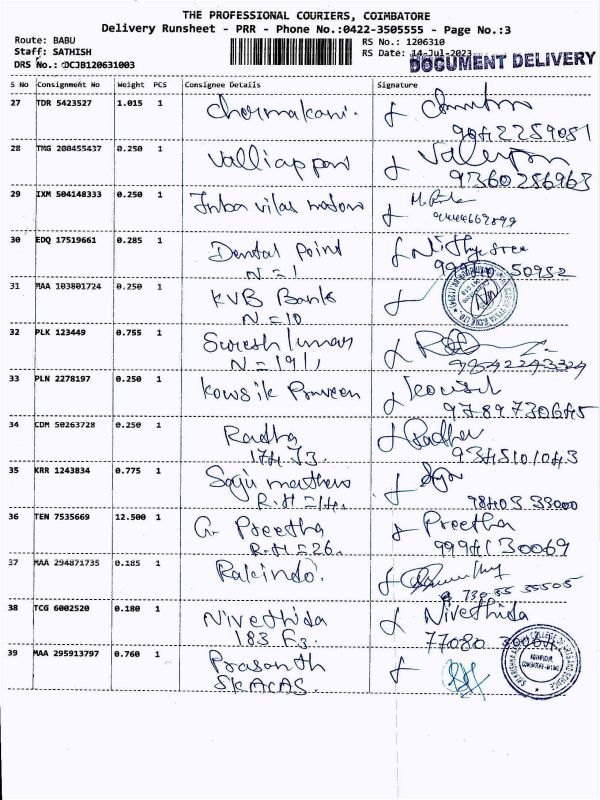 THE PROFESSIONAL COURIERS, COIMBATORE
Delivery Runsheet - PRR - Phone No.:0422-3505555 - Page No.:3
Route: BABU RS No.: 1206310
Staff: SATHISH RS Date: 14-Jul-2023
DRS No.: DCJB120631003 DOCUMENT DELIVERY
S No Consignment No Weight PCS Consignee Details Signature
27 TDR 5423527 1.015 1
9042259051
28 TMG 200455437 0.250 1 Valliappan
9360286963
29 IXM 504148333 0.250 1 Inba vilas
30 EDQ 17519661 0.285 1 Dental Point Nithyasree
N=1
31 MAA 103801724 0.250 1 KVB Bank
N=10
32 PLK 123449 0.755 1 Suresh kumar
N=191,
33 PLN 2278197 0.250 1 Kowsik Praveen Kousik
34 CDM 50263728 0.250 1 Radha Radha
174.J3. 9345101043
35 KRR 1243834 0.775 1 Saju mathew
R.H=14. 98403 33000
36 TEN 7535669 12.500 1 G. Preetha Preetha
R.H=26. 9994130069
37 MAA 294871735 0.185 1
38 TCG 6002520 0.180 1 Nivethida Nivethida
183 F3. 77080
39 MAA 295913797 0.760 1 Prasanth
SKACAS.